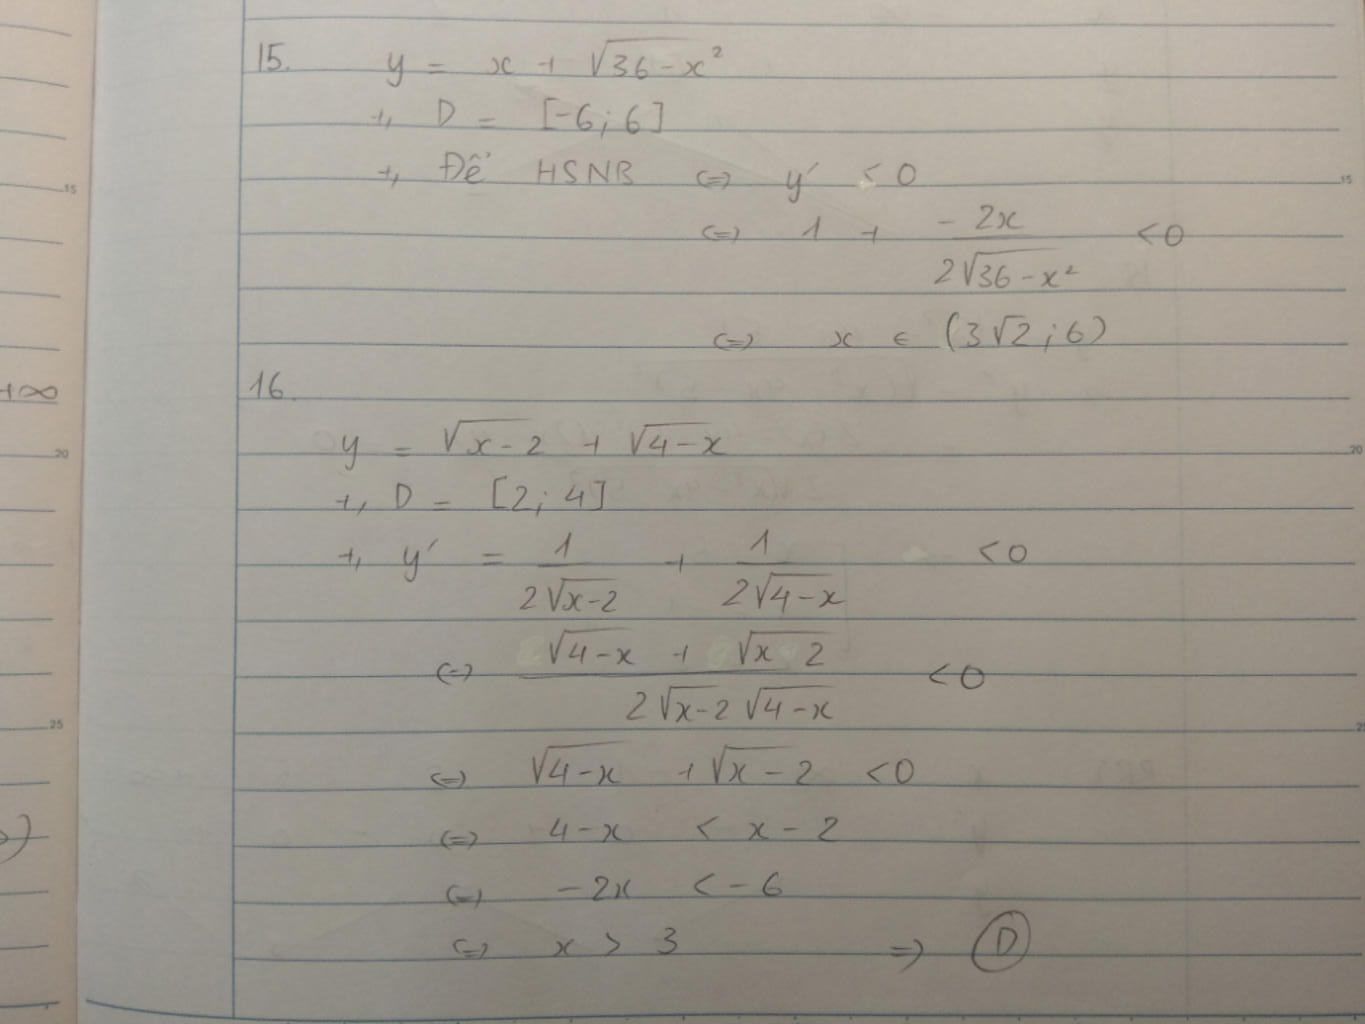 15. y = x + √36-x²
+, D = [-6; 6]
+, Để HSNB <=> y' < 0
<=> 1 + -2x / 2√36-x² < 0
<=> x ∈ (3√2; 6)
+∞ 16.
y = √x-2 + √4-x
+, D = [2; 4]
+, y' = 1 / 2√x-2 + 1 / 2√4-x < 0
<=> √4-x + √x 2 / 2√x-2 √4-x < 0
<=> √4-x + √x-2 < 0
<=> 4-x < x-2
<=> -2x < -6
<=> x > 3 => D
15
20
25
15
20
25